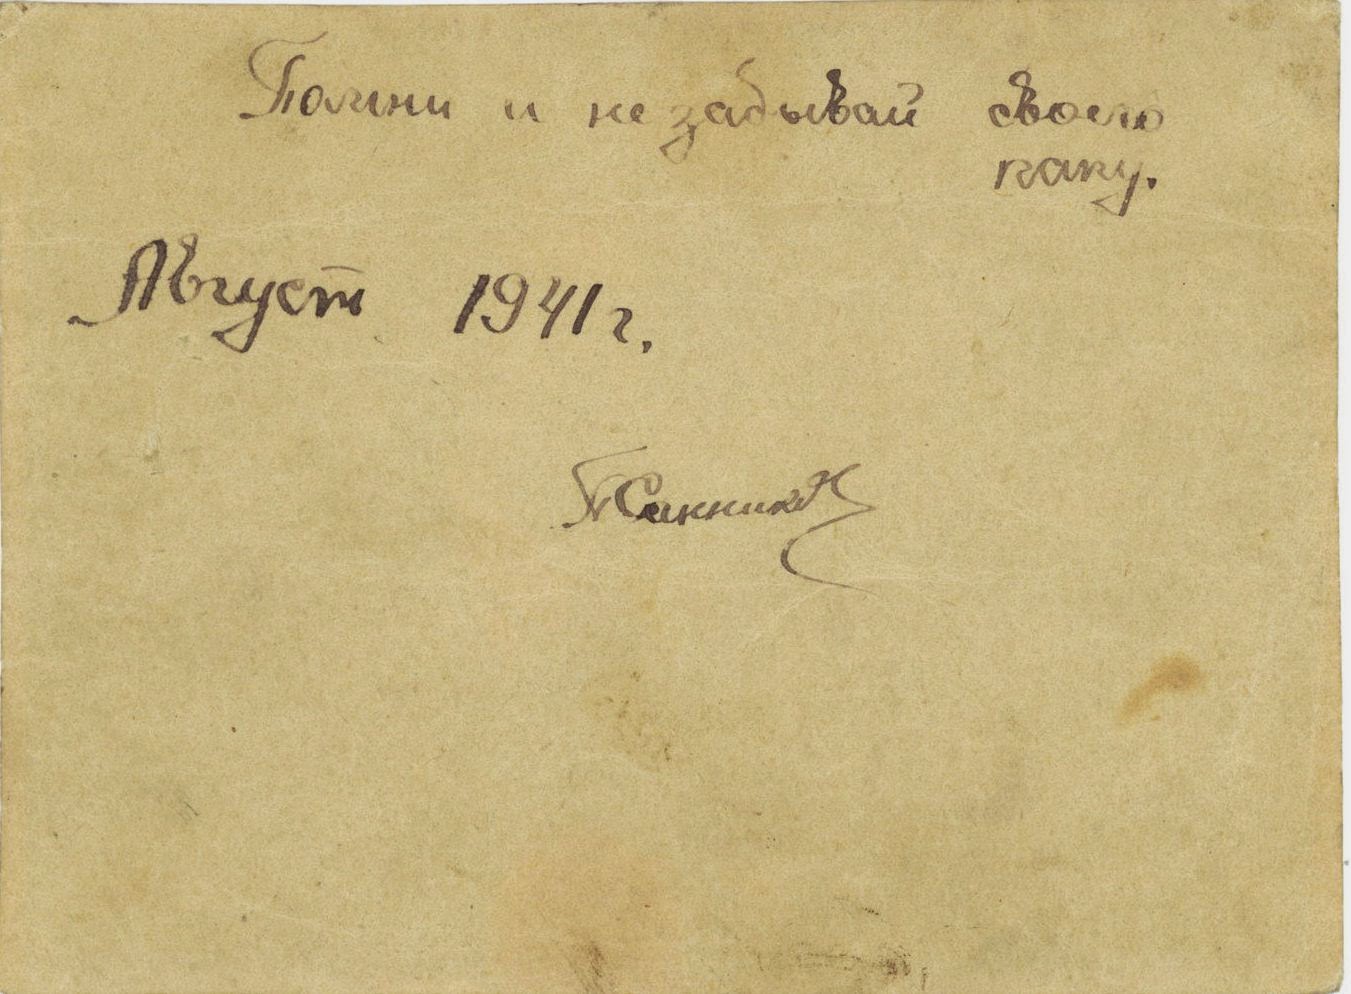 Помни и не забывай своего
папу.
Август 1941 г.
ПСанников